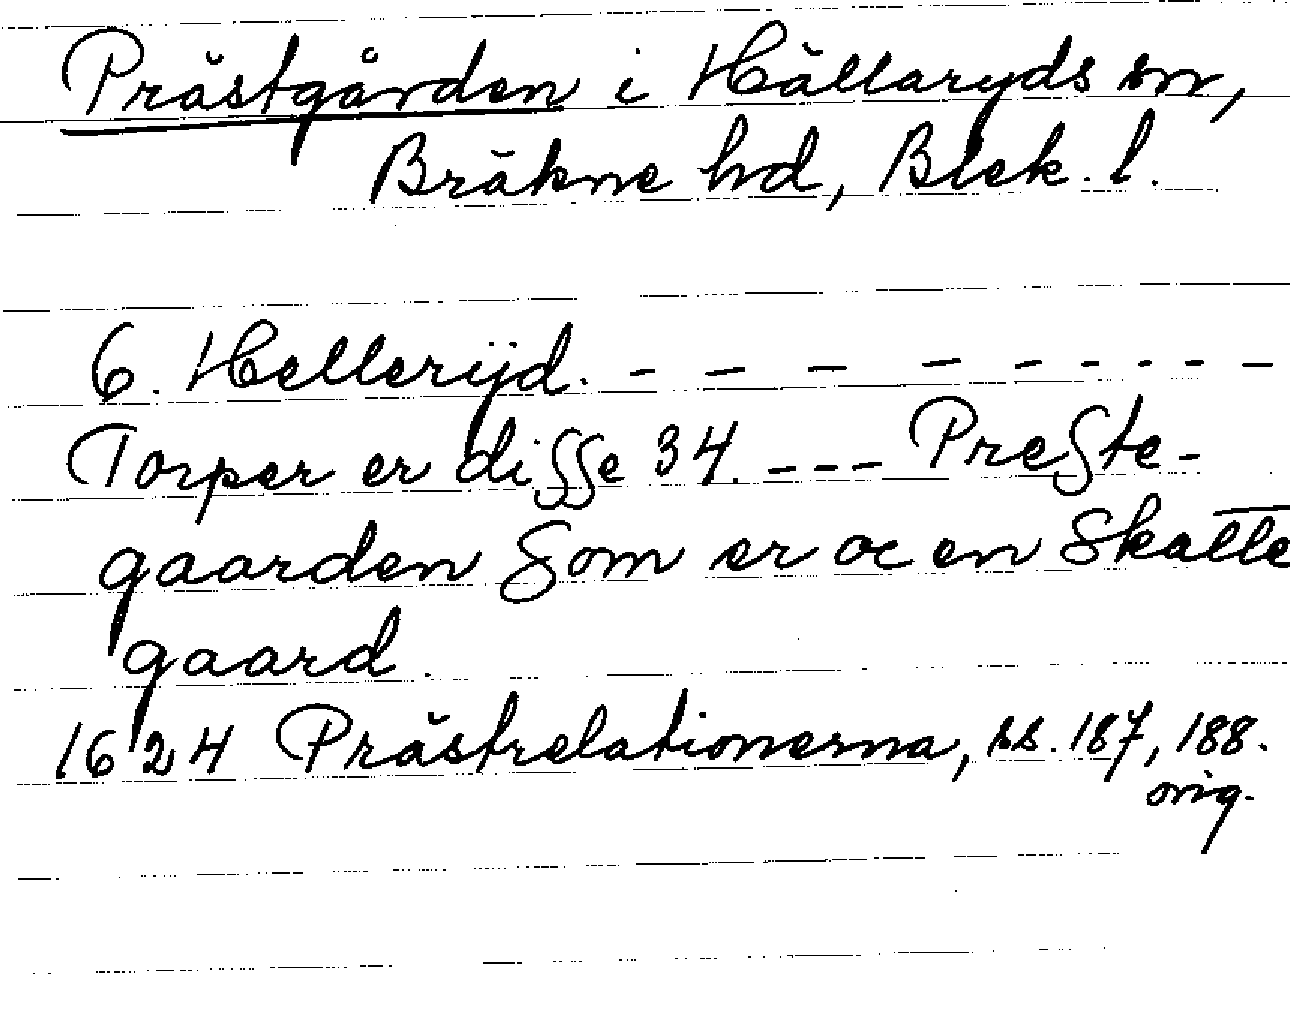 Prästgården i Hällaryds sn,
Bräkne hd, Blek. l.
6. Hellerijd. - - - - - - - - -
Torper er disse 34. - - - Preste-
gaarden Som er oc en Skatte
gaard.
1624 Prästrelationerna, ss. 187, 188.
orig.